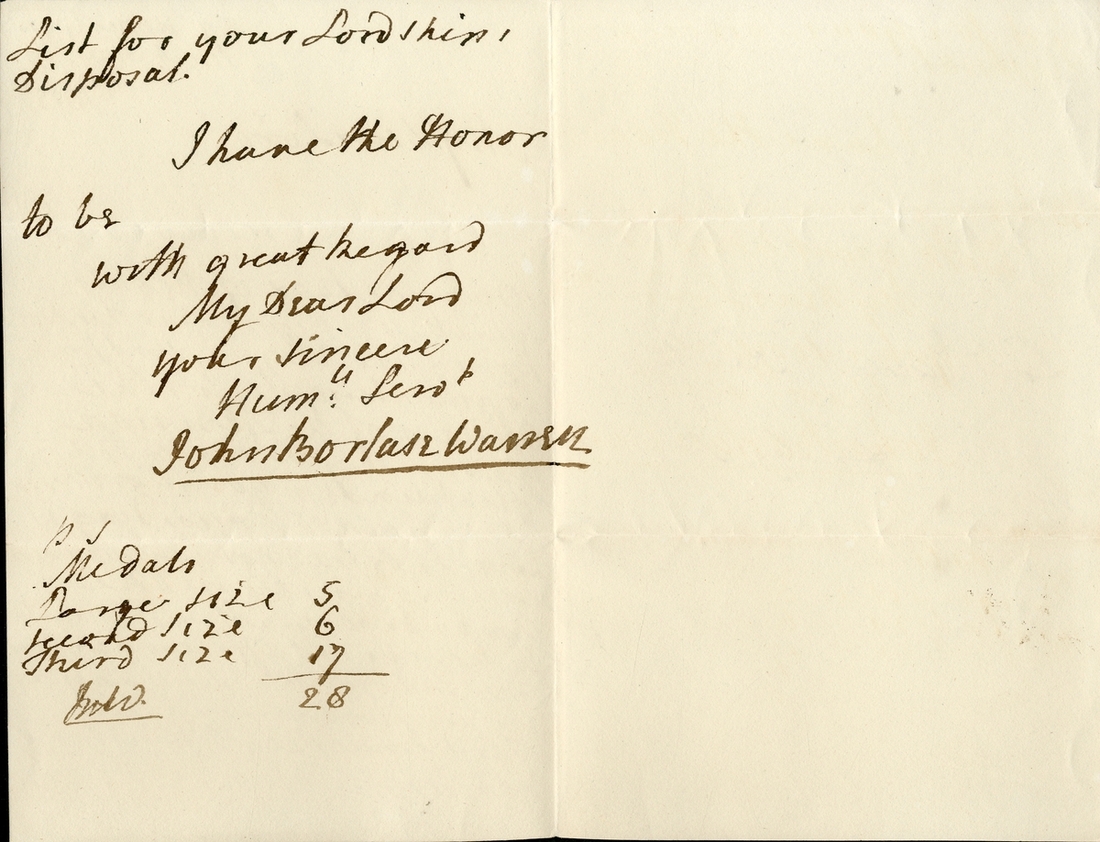 List for your Lordships
Disposal.
I have the Honor
to be
with great Regard
My Dear Lord
your sincere
Hum.ll Servt
John Borlase Warren
P S
Medals
Large size 5
second size 6
Third size 17
JBW. 28